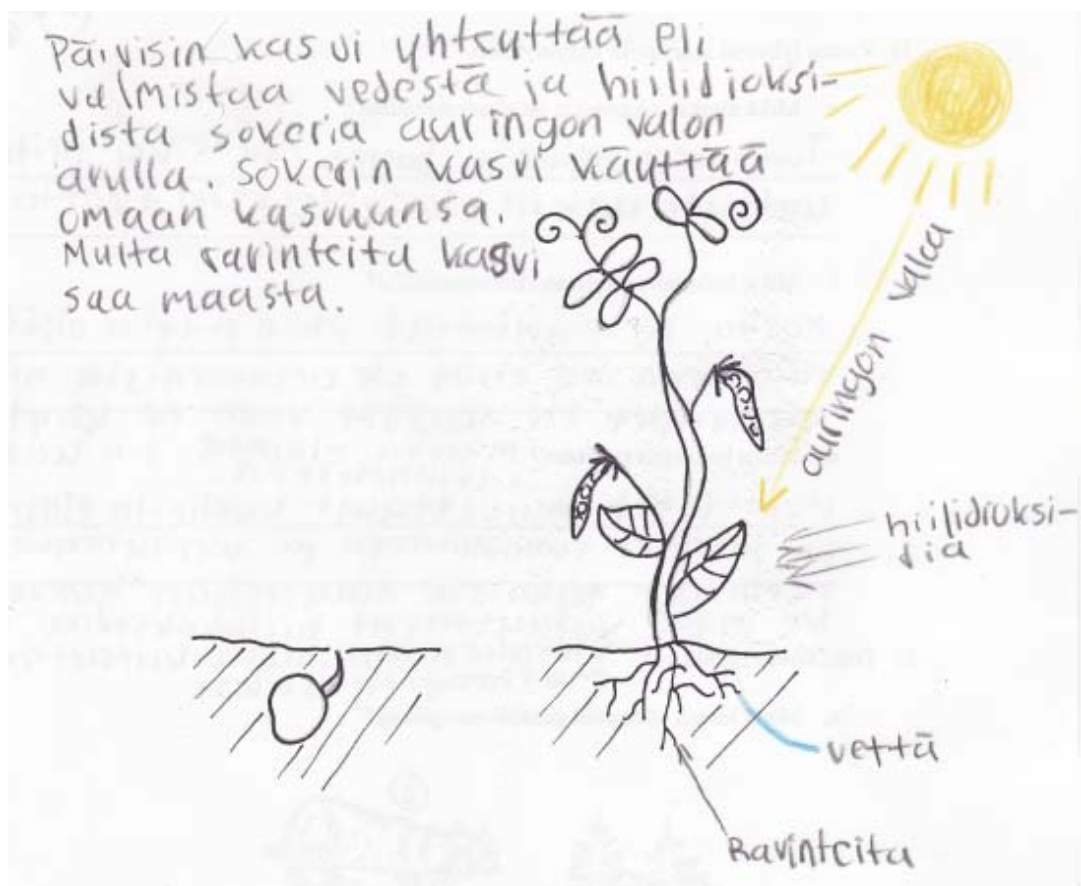 Päivisin kasvi yhteyttää eli
valmistaa vedestä ja hiilidioksi-
dista sokeria auringon valon
avulla. Sokerin kasvi käyttää
omaan kasvuunsa.
Muita ravinteita kasvi
saa maasta.
auringon valoa
hiilidioksi-
dia
vettä
Ravinteita